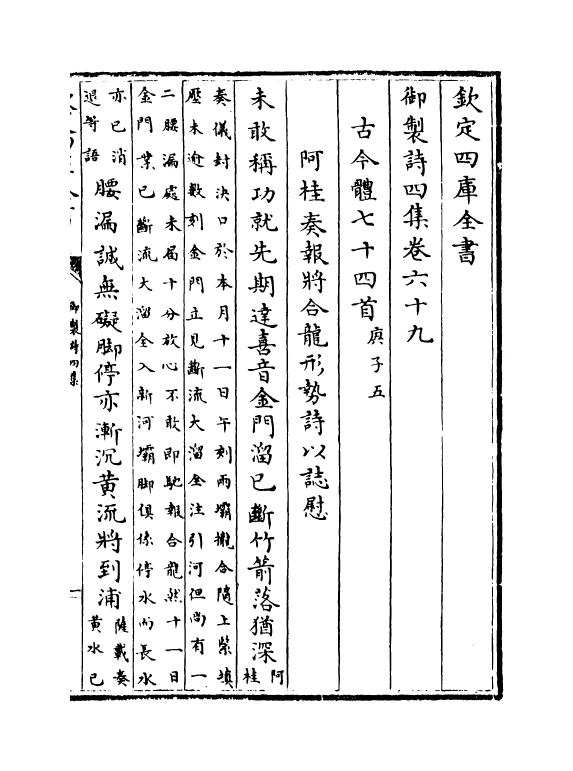 欽定四庫全書
御製詩四集卷六十九
古今體七十四首庚子五
阿桂奏報將合龍形勢詩以誌慰
未敢稱功就先期達喜音金門溜已斷竹箭落猶深阿桂
奏儀封決口於本月十一日午刻兩壩攏合隨上柴填
壓未逾數刻金門立見斷流大溜全注引河但尚有一
二腰漏處未屆十分放心不敢即馳報合龍然十一日
金門業已斷流大溜全入新河壩脚俱係停水而長水
亦已消
退等語腰漏誠無礙脚停亦漸沉黃流將到浦薩載奏
黃水已
御製詩四集
一